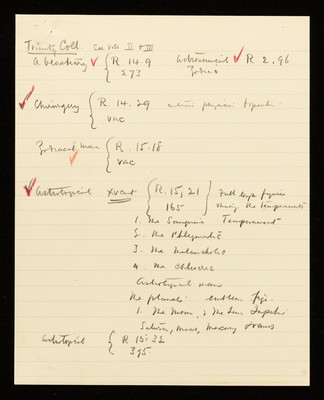 Trinity Coll. see vols II + III
R 14.9
273
astronomical R 2.96
Chirurgery R. 14.29
vac
Zodiacal man R. 15.18
vac
Astrological XV cent R. 15, 21 Full length figures
165 showing the temperaments
1. The Sanguine Temperament
2. The Phlegmatic
3. The Melancholic
4. The choleric
Astrological man
The planets emblem figs.
1. The Moon, 2 The Sun Jupiter
Saturn, Mars, Mercury + Venus
R 15.32
395